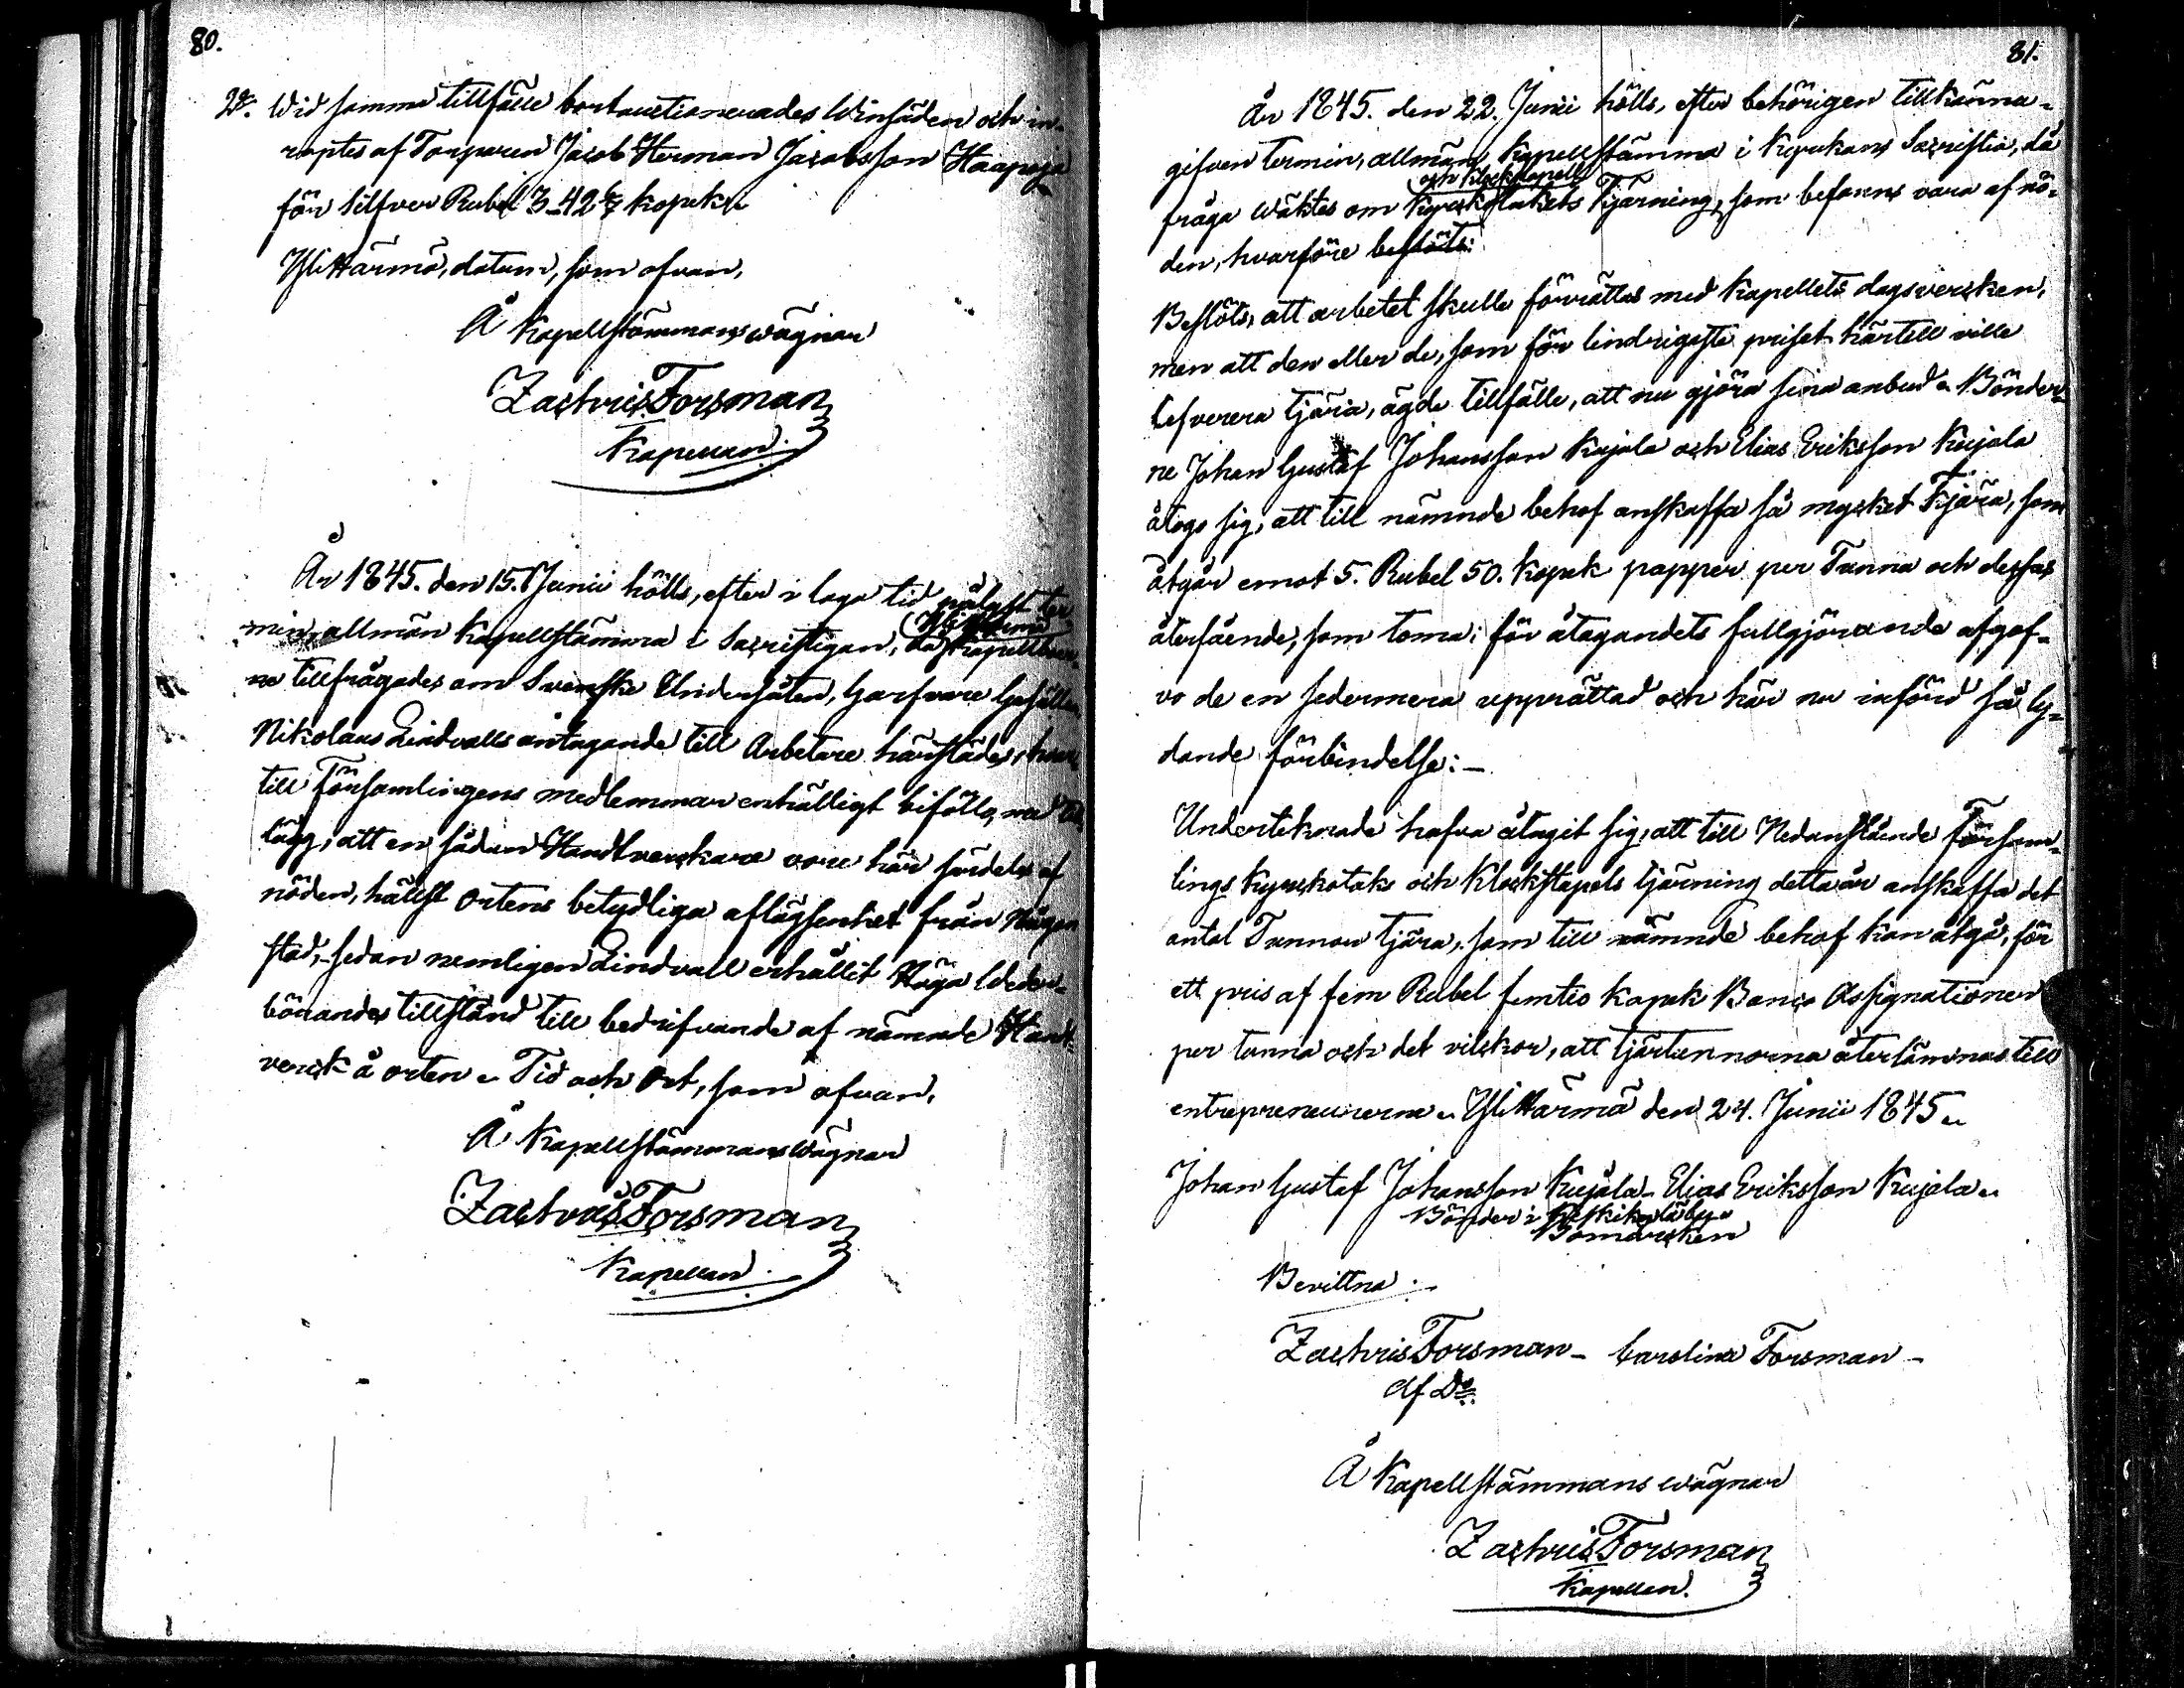 80.
2o. Wid samma tillfälle bortauctionerades Winsäden och in-
roptes af Torparen Jacob Herman Jacobsson Haapoja
för Silfver Rubel 3-42 6/7 kopek.
Yli Härmä, datum, som ofvan,
Å Kapellstämmans wägnar
Zachris Forsman
Kapellan.
År 1845. den 15. Junii hölls, efter i laga tid pålyst ter-
min, allmän Kapellstämma i Sacristigan, då Yli Härmä Kapellboer-
ne tillfrågades om Svenske Undersåten, Garfvare Gesällen
Nikolaus Lindvalls antagande till Arbetare härstädes, hvar-
till Församlingens medlemmar enhälligt biföllo, med til-
lägg, att en sådan Handtverkare vore här särdeles af
nöden, hällst Ortens betydliga aflägsenhet från någon
stad, sedan nemligen Lindvall erhållit Höga Weder-
börandes tillstånd till bedrifvande af nämnde Handt-
verck å orten. Tid och Ort, som ofvan.
Å Kapellstämmans Wägnar
Zachris Forsman
Kapellan.
81.
År 1845. den 22. Junii hölls, efter behörigen tillkänna-
gifven termin, allmän Kapellstämma i Kyrkans Sacristia, då
fråga wäktes om Kyrkotakets och Klockstapelns Tjärning, som befanns vara af nö-
den, hvarföre beslöts:
Beslöts, att arbetet skulle förrättas med Kapellets dagsvercken,
men att den eller de, som för lindrigaste priset härtill ville
lefverera tjära, ägde tillfälle, att nu gjöra sina anbud. Bönder-
ne Johan Gustaf Johansson Kujala och Elias Eriksson Kujala
åtogo sig, att till nämnde behof anskaffa så mycket Tjära, som
åtgår emot 5. Rubel 50. Kopek papper per Tunna och dessas
återfående, som toma; för åtagandets fullgjörande afgof-
vo de en sedermera upprättad och här nu införd så ly-
dande förbindelse:-
Undertecknade hafva åtagit sig, att till Nedanstående Försam-
lings Kyrckotaks och Klockstapels tjärning detta år anskaffa det
antal Tunnor tjära, som till nämnde behof kan åtgå, för
ett pris af fem Rubel femtio Kopek Banco Assignationer
per tunna och det vilckor, att tjärtunnorna återlämnas till
entrepreneurerne. Yli Härmä den 24. Junii 1845.
Johan Gustaf Johansson Kujala - Elias Eriksson Kujala.
Bönder i
Bomärcken
Bevittna:
Zachris Forsman - Carolina Forsman -
Af Do
Å Kapellstämmans wägnar
Zachris Forsman
Kapellan.